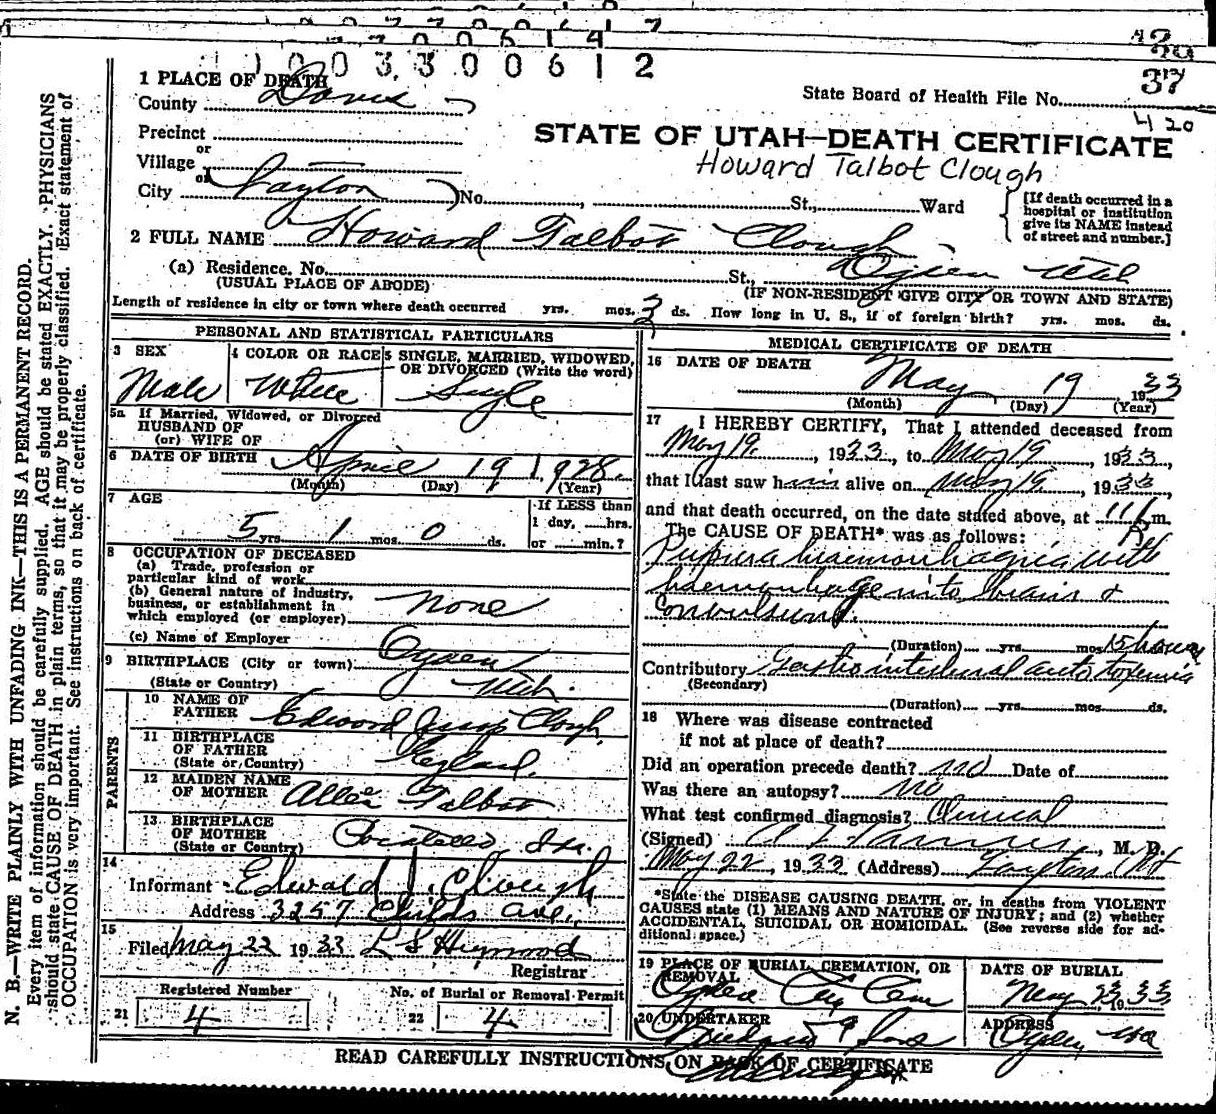 1 0 0 3 3 0 0 6 1 2
37
420
1 PLACE OF DEATH
County Davis
State Board of Health File No.
Precinct
STATE OF UTAH—DEATH CERTIFICATE
or
Village
Howard Talbot Clough
or
City Layton No. , St., Ward
[If death occurred in a hospital or institution give its NAME instead of street and number.]
2 FULL NAME Howard Talbot Clough
(a) Residence. No. St., Ogden Utah
(USUAL PLACE OF ABODE) (IF NON-RESIDENT GIVE CITY OR TOWN AND STATE)
Length of residence in city or town where death occurred yrs. mos. 3 ds. How long in U. S., if of foreign birth? yrs. mos. ds.
PERSONAL AND STATISTICAL PARTICULARS
3 SEX
Male
4 COLOR OR RACE
White
5 SINGLE, MARRIED, WIDOWED,
OR DIVORCED (Write the word)
Single
5a If Married, Widowed, or Divorced
HUSBAND OF
(or) WIFE OF
6 DATE OF BIRTH April 19 1928.
(Month) (Day) (Year)
7 AGE
5 yrs. 1 mos. 0 ds.
If LESS than
1 day, hrs.
or min.?
8 OCCUPATION OF DECEASED
(a) Trade, profession or
particular kind of work
(b) General nature of industry,
business, or establishment in
which employed (or employer) none
(c) Name of Employer
9 BIRTHPLACE (City or town) Ogden
(State or Country) Utah.
PARENTS
10 NAME OF
FATHER Edward Clough
11 BIRTHPLACE
OF FATHER
(State or Country) England.
12 MAIDEN NAME
OF MOTHER Allie Talbot
13 BIRTHPLACE
OF MOTHER
(State or Country) Pocatello, Ida.
14
Informant Edward J. Clough
Address 3257 Childs Ave.,
15
Filed May 22 1933 L S Heywood
Registrar
Registered Number
21 4
No. of Burial or Removal Permit
22 4
MEDICAL CERTIFICATE OF DEATH
16 DATE OF DEATH
May 19 1933
(Month) (Day) (Year)
17 I HEREBY CERTIFY, That I attended deceased from
May 19, 1933, to May 19, 1933,
that I last saw him alive on May 19, 1933,
and that death occurred, on the date stated above, at 11 P m.
The CAUSE OF DEATH* was as follows:
Purpura haemorrhagica with
haemorrhage into brain &
convulsions.
(Duration) yrs. mos. 15 hours
Contributory Gastro intestinal auto toxemia
(Secondary)
(Duration) yrs. mos. ds.
18 Where was disease contracted
if not at place of death?
Did an operation precede death? no Date of
Was there an autopsy? no
What test confirmed diagnosis? Clinical
(Signed) , M. D.
May 22, 1933 (Address) Layton Ut
*State the DISEASE CAUSING DEATH, or, in deaths from VIOLENT
CAUSES state (1) MEANS AND NATURE OF INJURY; and (2) whether
ACCIDENTAL, SUICIDAL OR HOMICIDAL. (See reverse side for ad-
ditional space.)
19 PLACE OF BURIAL, CREMATION, OR
REMOVAL
Ogden City Cem
DATE OF BURIAL
May 23 1933
20 UNDERTAKER
& Sons
ADDRESS
Ogden Uta
READ CAREFULLY INSTRUCTIONS ON BACK OF CERTIFICATE
N. B.—WRITE PLAINLY WITH UNFADING INK—THIS IS A PERMANENT RECORD.
Every item of information should be carefully supplied. AGE should be stated EXACTLY. PHYSICIANS
should state CAUSE OF DEATH in plain terms, so that it may be properly classified. Exact statement of
OCCUPATION is very important. See instructions on back of certificate.